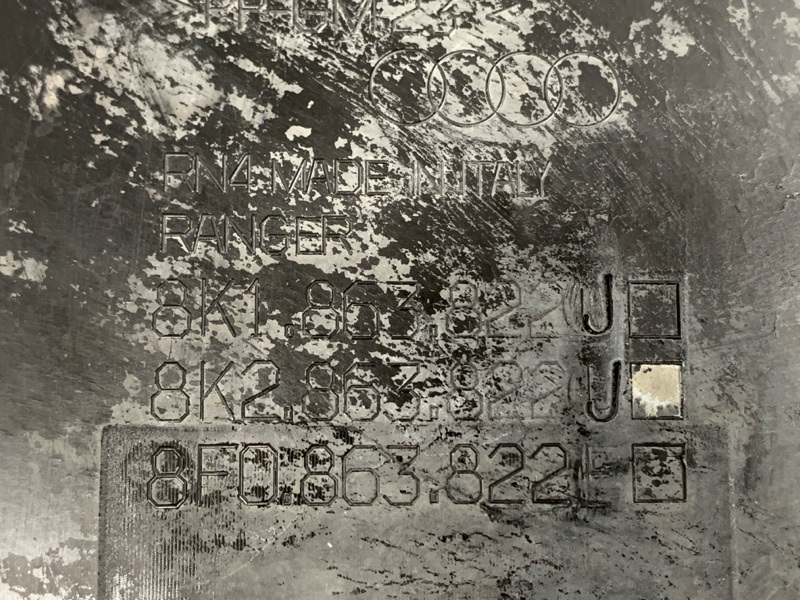 RN4 MADE IN ITALY
RANGER
8K1.863.822 J
8K2.863.822 J
8F0.863.822